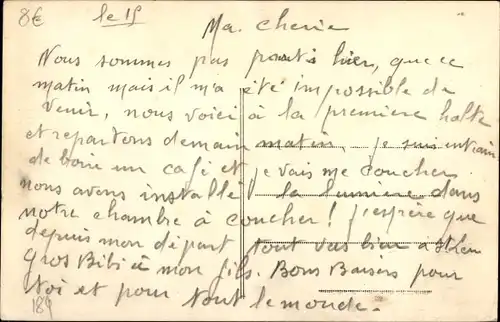 8€
le 15
Ma. Cherie
Nous sommes pas partis hier, que ce
matin mais il m'a été impossible de
venir, nous voici à la première halte
et repartons demain matin, je suis entrain
de boire un café et je vais me coucher
nous avons installé la lumière dans
notre chambre à coucher! j'espère que
depuis mon départ tout vas bien a
Gros Bibi à mon fils. Bons Baisers pour
toi et pour tout le monde.
189